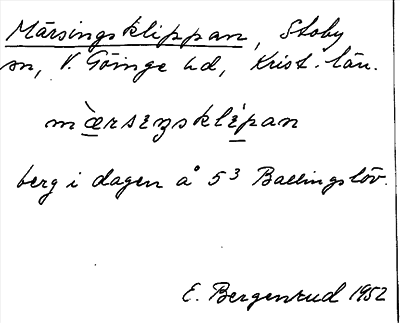 Mårsingsklippan, Stoby
sn, V. Göinge hd, Krist. län.
mæ̀rseŋsklépan
berg i dagen å 5³ Ballingslöv.
E. Bergenrud 1952